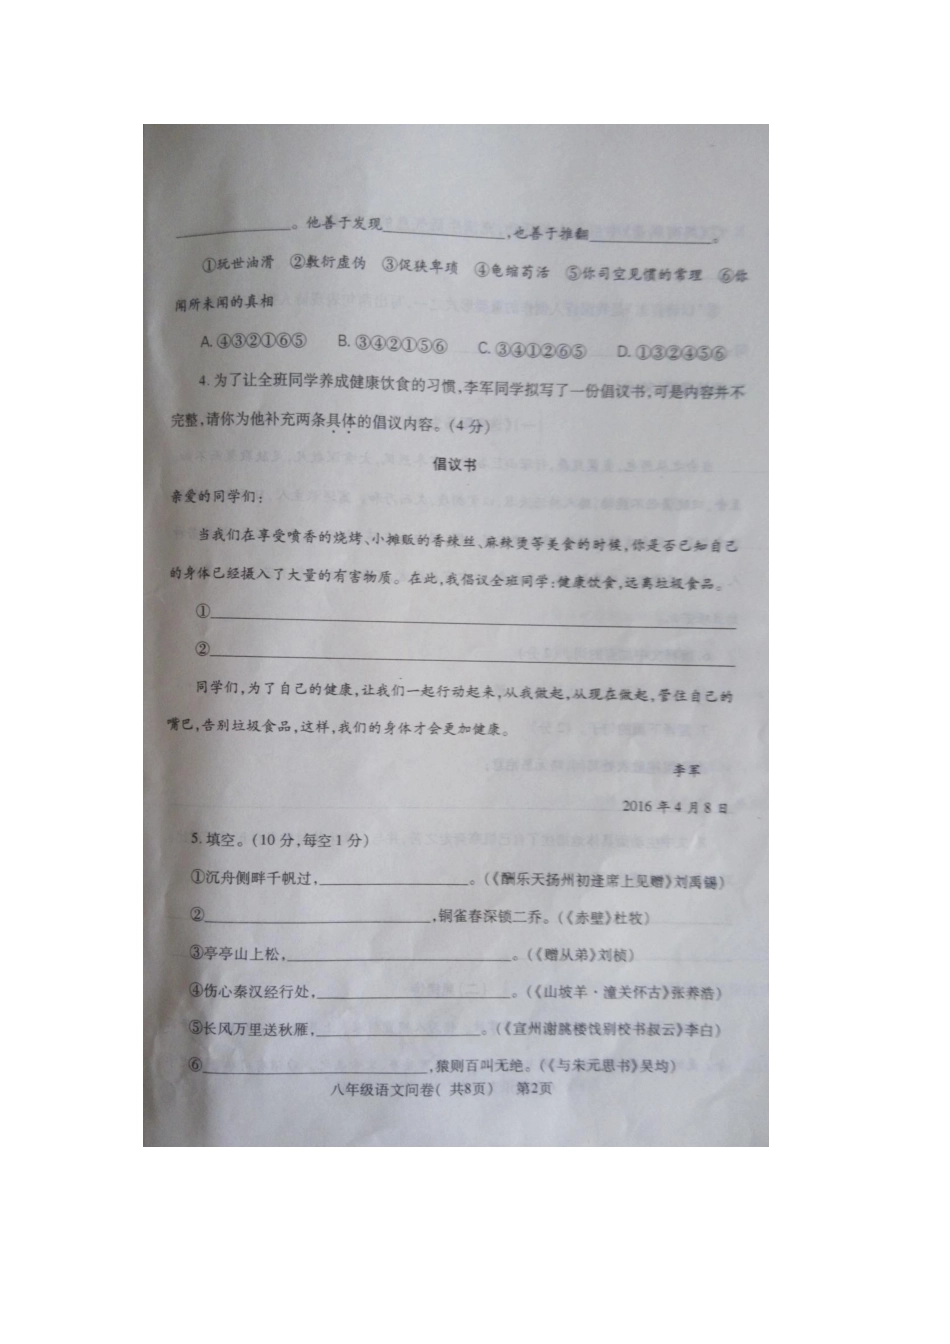 。他善于发现,也善于推翻。
①玩世油滑 ②敷衍虚伪 ③促狭卑琐 ④龟缩苟活 ⑤你司空见惯的常理 ⑥你
闻所未闻的真相
A.④③②①⑥⑤ B.③④②①⑤⑥ C.③④①②⑥⑤ D.①③②④⑤⑥
4.为了让全班同学养成健康饮食的习惯,李军同学拟写了一份倡议书,可是内容并不
完整,请你为他补充两条具体的倡议内容。(4分)
倡议书
亲爱的同学们:
当我们在享受喷香的烧烤、小摊贩的香辣丝、麻辣烫等美食的时候,你是否已知自己
的身体已经摄入了大量的有害物质。在此,我倡议全班同学:健康饮食,远离垃圾食品。
①
②
同学们,为了自己的健康,让我们一起行动起来,从我做起,从现在做起,管住自己的
嘴巴,告别垃圾食品,这样,我们的身体才会更加健康。
李军
2016年4月8日
5.填空。(10分,每空1分)
①沉舟侧畔千帆过,。(《酬乐天扬州初逢席上见赠》刘禹锡)
②,铜雀春深锁二乔。(《赤壁》杜牧)
③亭亭山上松,。(《赠从弟》刘桢)
④伤心秦汉经行处,。(《山坡羊·潼关怀古》张养浩)
⑤长风万里送秋雁,。(《宣州谢朓楼饯别校书叔云》李白)
⑥,猿则百叫无绝。(《与朱元思书》吴均)
八年级语文问卷( 共8页) 第2页